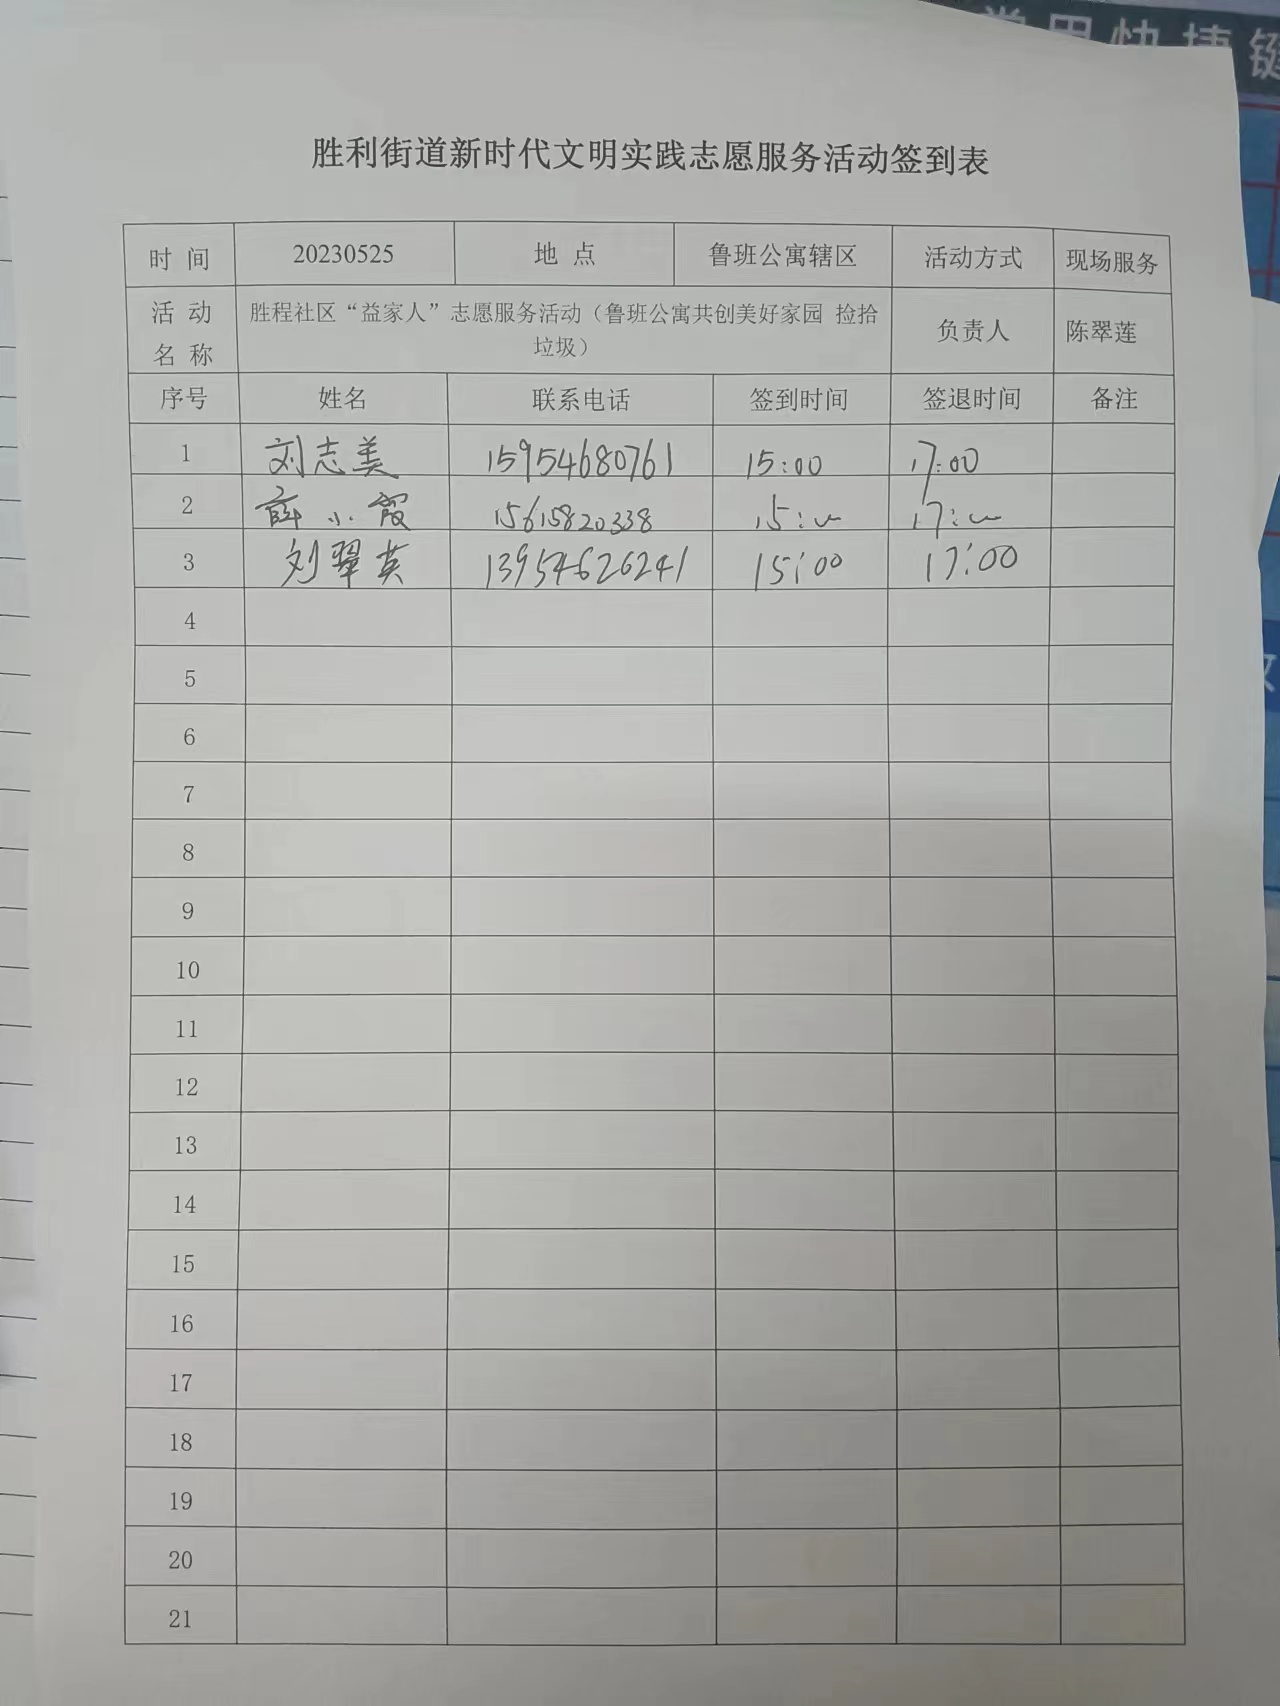 常用快捷键
胜利街道新时代文明实践志愿服务活动签到表
时 间 20230525 地 点 鲁班公寓辖区 活动方式 现场服务
活 动 名 称 胜程社区“益家人”志愿服务活动（鲁班公寓共创美好家园 捡拾垃圾） 负责人 陈翠莲
序号 姓名 联系电话 签到时间 签退时间 备注
1 刘志美 15954680761 15:00 17:00
2 薛小霞 15615820338 15:00 17:00
3 刘翠英 13954626241 15:00 17:00
4
5
6
7
8
9
10
11
12
13
14
15
16
17
18
19
20
21